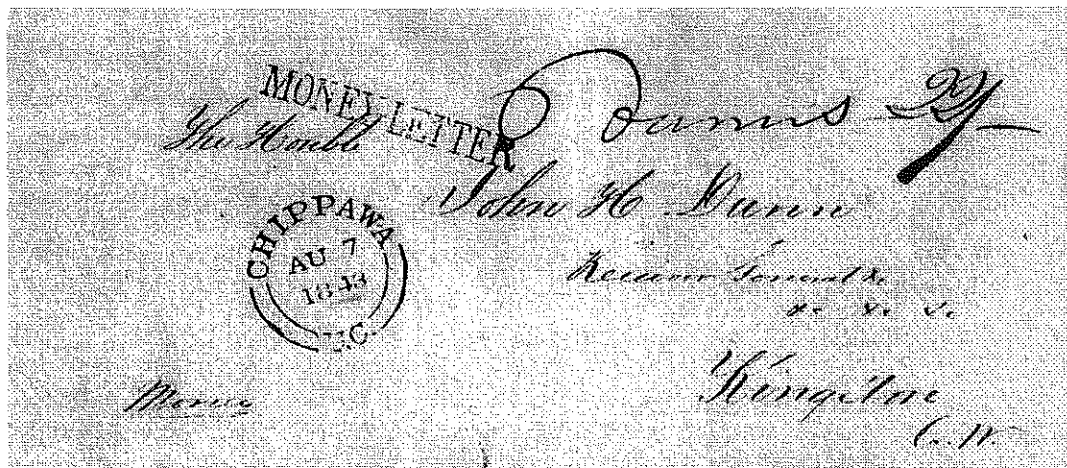 MONEY LETTER
The Honble
John H Dunn
Receiver General &c
&c &c &c
CHIPPAWA
AU 7
1843
U.C.
Money
Kingston
C. W.